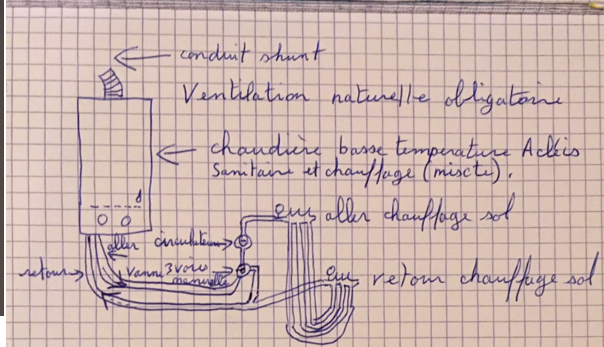 conduit shunt
Ventilation naturelle obligatoire
chaudière basse température Acléis
Sanitaire et chauffage (miscte).
aller chauffage sol
aller circulateur
retour
vanne 3 voies
manuelle
retour chauffage sol